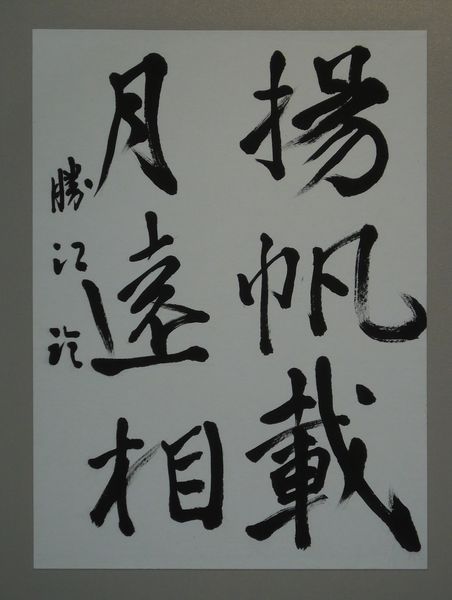 揚帆載
月遠相
勝江